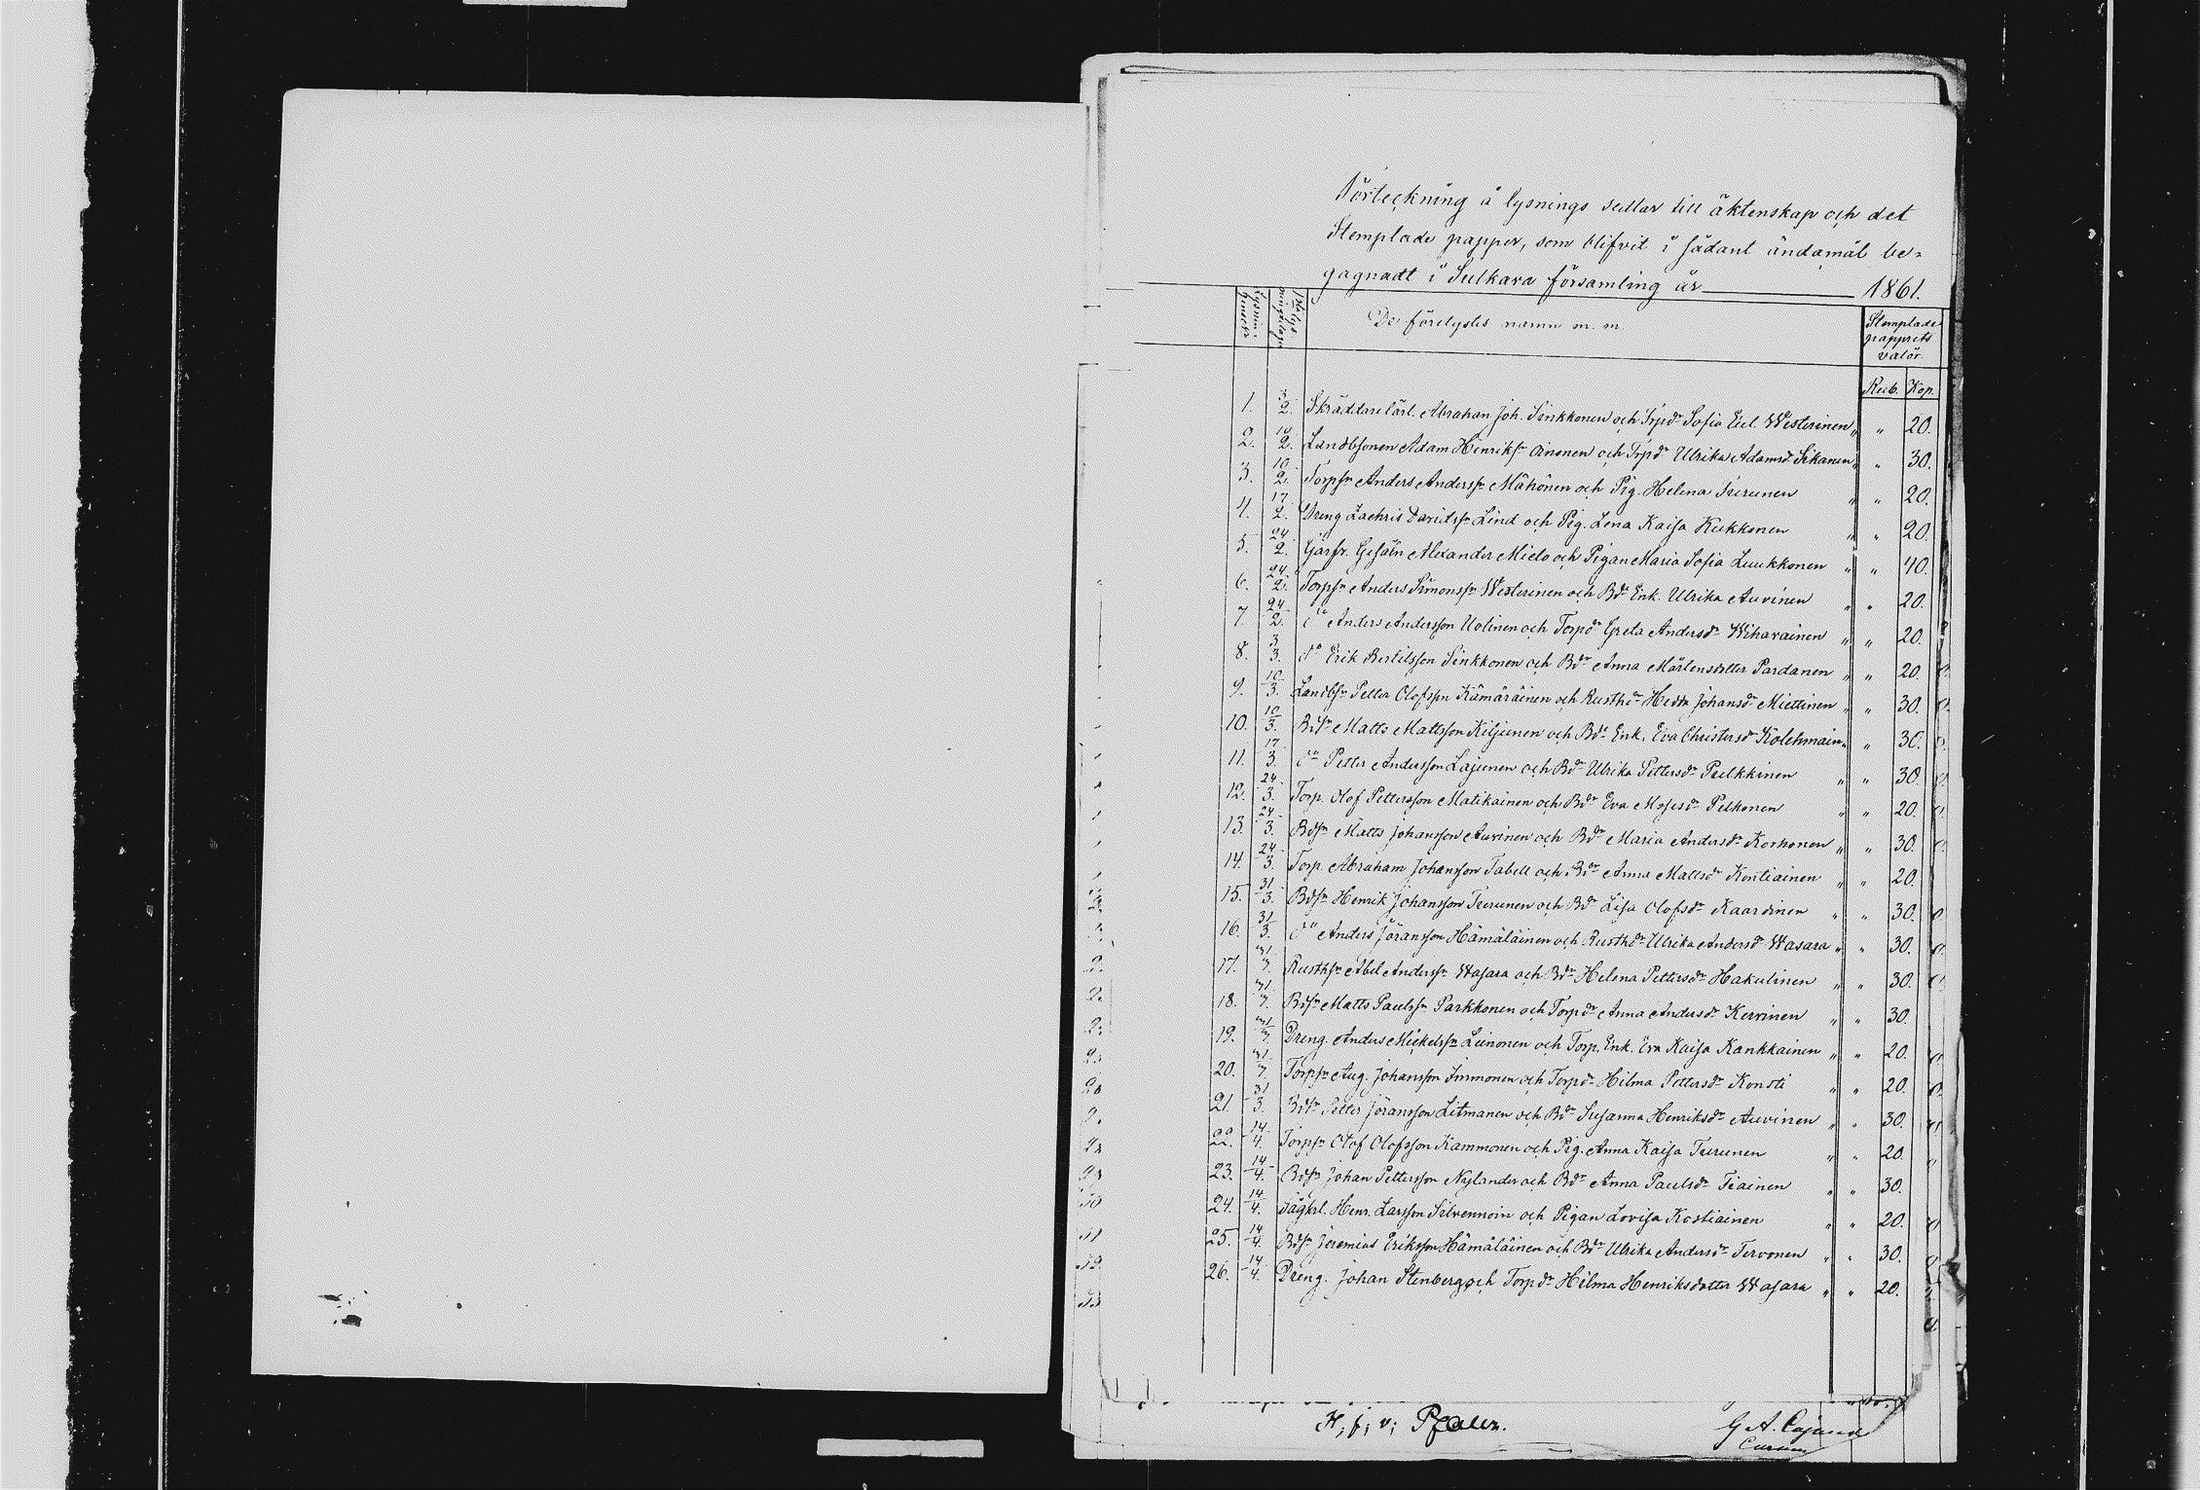 Förteckning å lysnings sedlar till äktenskap och det
Stemplade papper, som blifvit i sådant ändamål be-
gagnadt i Sulkava församling år 1861.
De förelystes namn m. m. Stemplade papprets valör.
Rub. Kop.
1. 3/2. Skräddarelärl. Abraham Joh. Sinkkonen och Trpdr Sofia Eul. Westerinen " " 20.
2. 10/2. Landbsonen Adam Henriksr Ainonen och Trpdr Ulrika Adamsd. Sikanen " " 30.
3. 10/2. Torpsn Anders Anderssn Mähönen och Pig. Helena Turunen " " 20.
4. 17/2. Dreng Zachris Davidssn Lind och Pig. Lena Kaisa Kukkonen " " 20.
5. 24/2. Gesäln Alexander Mielo och Pigan Maria Sofia Luukkonen " " 40.
6. 24/2. Torpsn Anders Simonssn Westerinen och Bdr Enk. Ulrika Auvinen " " 20.
7 24/2. do Anders Andersson Uotinen och Torpdr Greta Andersdr Wiharainen " " 20.
8. 3/3. do Erik Bertilsson Sinkkonen och Bdr Anna Mårtensdotter Pardanen " " 20.
9. 10/3. Landbsn Petter Olofsson Kämäräinen och Rusthdr Hedda Johansdr Miettinen " " 30.
10. 10/3. Bdsn Matts Mattsson Kiljunen och Bdr Enk. Eva Christersdr Kolehmain " " 30.
11. 17/3. do Petter Andersson Lajunen och Bdr Ulrika Pettersdr Pulkkinen " " 30.
12. 24/3. Torp. Olof Pettersson Matikainen och Bdr Eva Mosesdr Pelkonen " " 20.
13. 24/3. Bdsn Matts Johansson Auvinen och Bdr Maria Andersdr Korhonen " " 30.
14. 24/3. Torp. Abraham Johansson Tabell och Bdr Anna Mattsdr Kontiainen " " 20.
15. 31/3. Bdsn Henrik Johansson Turunen och Bdr Lisa Olofsdr Kaartinen " " 30.
16. 31/3. do Anders Jöransson Hämäläinen och Rusthdr Ulrika Andersdr Wasara " " 30.
17. 31/3. Rusthsn Abel Anderssn Wasara och Bdr Helena Pettersdr Hakulinen " " 30.
18. 31/3. Bdsn Matts Paulssn Parkkonen och Torpdr Anna Andersdr Kervinen " " 30.
19. 31/3. Dreng. Anders Mickelssn Liinonen och Torp. Enk. Eva Kaisa Kankkainen " " 20.
20. 31/3. Torpsn Aug. Johansson Immonen och Torpdr Hilma Pettersdr Konsti " " 20.
21. 31/3. Bdsn Petter Jöransson Litmanen och Bdr Susanna Henriksdr Auvinen " " 30.
22. 14/4. Torpsn Olof Olofsson Kammonen och Pig. Anna Kaisa Turunen " " 20.
23. 14/4. Bdsn Johan Pettersson Nylander och Bdr Anna Paulsdr Tiainen " " 30.
24. 14/4. Henr. Larsson Silvennoin och Pigan Lovisa Kostiainen " " 20.
25. 14/4. Bdsn Jeremias Eriksson Hämäläinen och Bdr Ulrika Andersdr Tervonen " " 30.
26. 14/4. Dreng. Johan Stenberg och Torpdr Hilma Henriksdotter Wasara " " 20.
G A. Cajanus